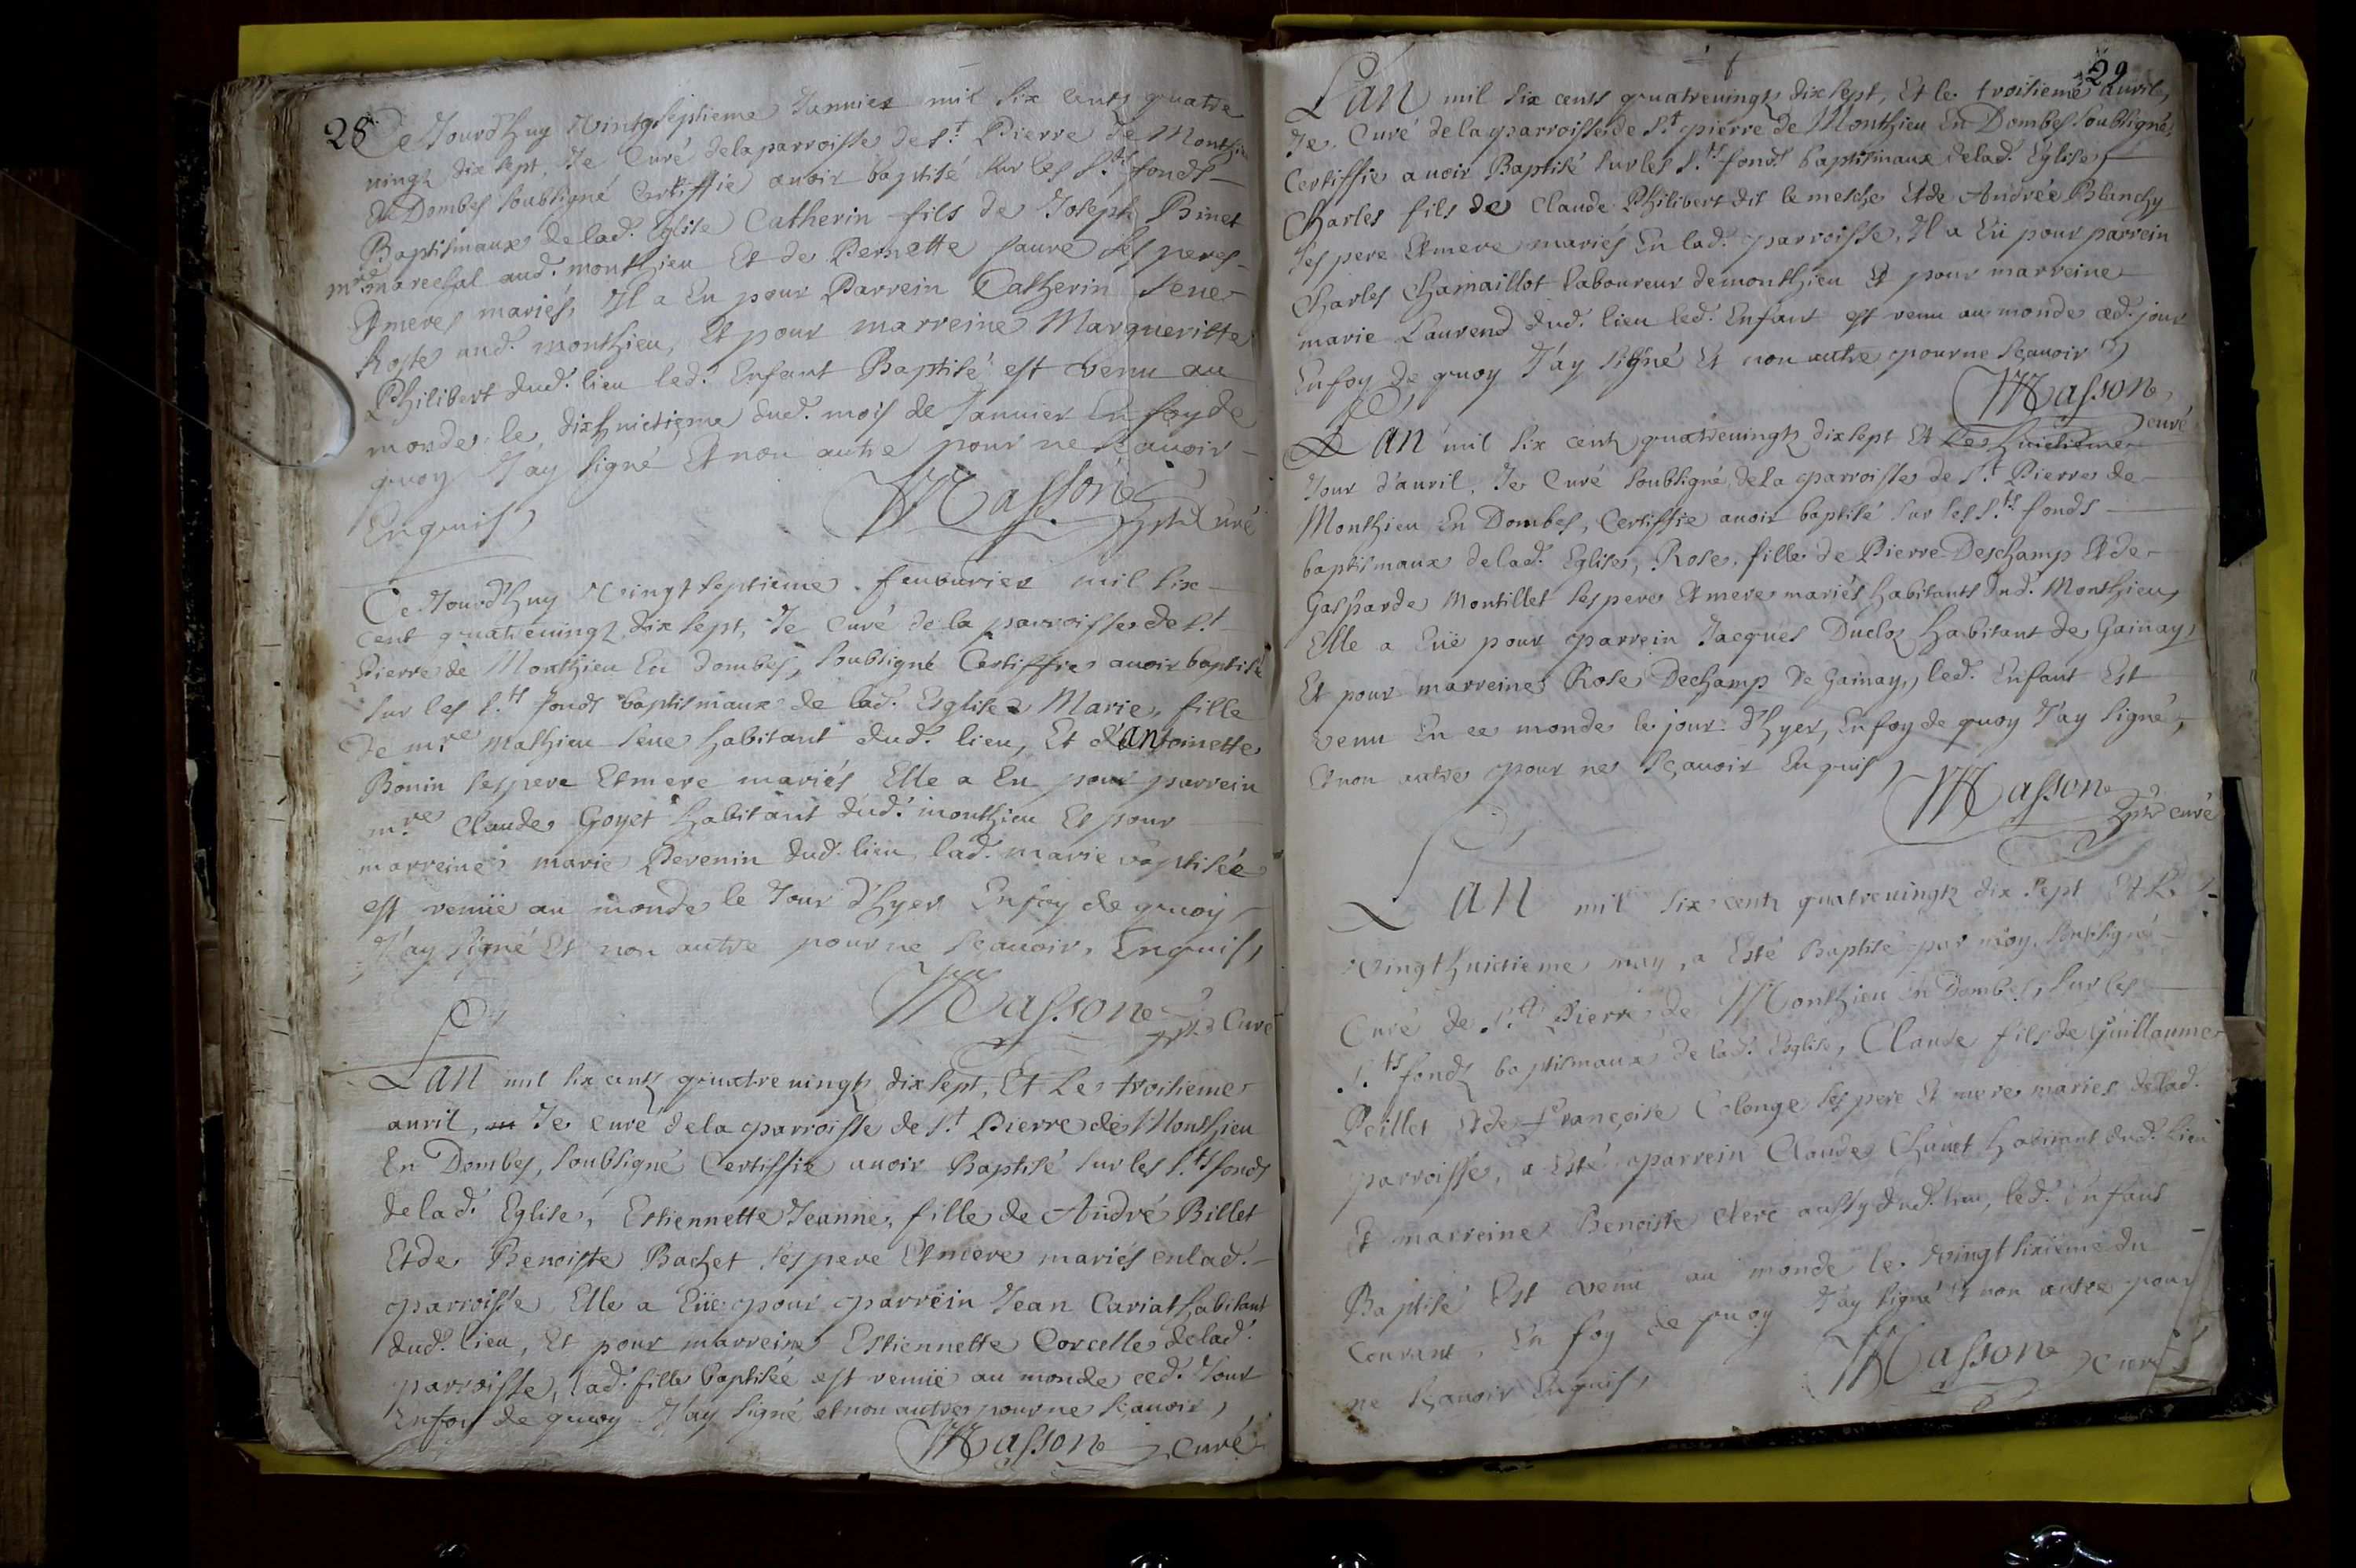 28
Ce Jourd'huy Vintgseptieme Januier mil six cents quatre
uingtz dix sept, Je Curé de la parroisse de St. Pierre de Monthieu
En Dombes soubsigné Certiffie auoir baptisé sur les Sts. fonds
Baptismaux de lad. Eglise Catherin fils de Joseph Binet
mre. marechal aud. monthieu Et de Pernette faure ses peres
Et meres mariés, Il a Eu pour Parrein Catherin Seue
hoste aud. monthieu, Et pour marreine Margueritte
Philibert dud. lieu led. Enfant Baptisé est venu au
monde le dixhuictieme dud. mois de Januier En foy de
quoy J'ay signé Et non autre pour ne Sçauoir
Enquis,
Masson ptre Curé
Ce Jourd'huy Vingtseptieme feuburier mil six
cent quatreuingtz dix sept, Je Curé de la parroisse de St.
Pierre de Monthieu En dombes, soubsigné Certiffie auoir baptisé
sur les Sts. fonds baptismaux de lad. Esglise Marie, fille
de mre. Mathieu Seue habitant dud. lieu, Et d'antoinette
Bonin ses pere Et mere mariés Elle a Eu pour parrein
mre. Claude Goyet habitant dud. monthieu Et pour
marreine marie Perenin dud. lieu, lad. marie baptisée
est venuë au monde le Jour d'hyer En foy de quoy
J'ay signé Et non autre pour ne sçauoir, Enquis,
Masson ptre Curé
L'an mil six centz quatreuingtz dix sept, Et Le troisieme
auril, Je curé de la parroisse de St. Pierre de Monthieu
En Dombes, soubsigné Certiffie auoir Baptisé sur les Sts. fonds
de lad. Eglise, Estiennette Jeanne, fille de André Billet
Et de Benoiste Bachet ses pere Et mere mariés en lad.
parroisse Elle a Eüe pour parrein Jean Cariat habitant
dud. lieu, Et pour marreine Estiennette Corcelle de lad.
parroisse, lad. fille baptisée est venuë au monde ced. Jour
En foy de quoy J'ay signé et non autre pour ne sçauoir,
Masson curé
29
L'an mil six cents quatreuingtz dix sept, Et le troisieme auril,
Je Curé de la parroisse de St. pierre de Monthieu En Dombes soubsigné
Certiffie auoir Baptisé sur les Sts. fonds baptismaux de lad. Eglise,
Charles fils de Claude Philibert dit le mesche Et de Andrée Blanchy
ses pere Et mere mariés En lad. parroisse, Il a Eü pour parrein
Charles Chamaillot laboureur de monthieu Et pour marreine
marie Laurend dud. lieu led. Enfant est venu au monde ced. jour
En foy de quoy J'ay signé Et non autre pour ne sçauoir
Masson curé
L'an mil six centz quatreuingtz dix sept Et Le huictieme
Jour d'auril, Je Curé soubsigné de la parroisse de St. Pierre de
Monthieu En Dombes, Certiffie auoir baptisé sur les Sts. fonds
baptismaux de lad. Eglise, Rose, fille de Pierre Deschamp Et de
Gasparde Montillet ses pere Et mere mariés habitants dud. Monthieu,
Elle a Euë pour parrein Jacques Duclos habitant de Gainay,
Et pour marreine Rose Dechamp de Gainay, led. Enfant Est
venu En ce monde le jour d'hyer, En foy de quoy J'ay signé,
Et non autre pour ne sçauoir Enquis,
Masson ptre curé
L'an mil six centz quatreuingtz dix sept Et Le
Vingthuictieme may, a Esté Baptisé par moy soubsigné
Curé de St. Pierre de Monthieu En Dombes, sur les
Sts. fonds baptismaux de lad. Esglise, Claude fils de Guillaume
Peillet Et de Françoise Colonge ses pere Et mere mariés de lad.
parroisse, a Esté parrein Claude Chanet habitant dud. lieu
Et marreine Benoiste clerc aussy dud. lieu, led. Enfant
Baptisé Est venu au monde le Vingtsixieme du
Courant, En foy de quoy J'ay signé Et non autre pour
ne Sçauoir Enquis,
Masson curé